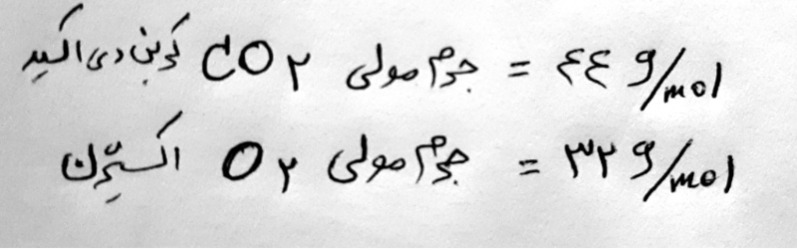 جرم مولی CO۲ کربن دی اکسید = ۴۴ g/mol
جرم مولی O۲ اکسیژن = ۳۲ g/mol